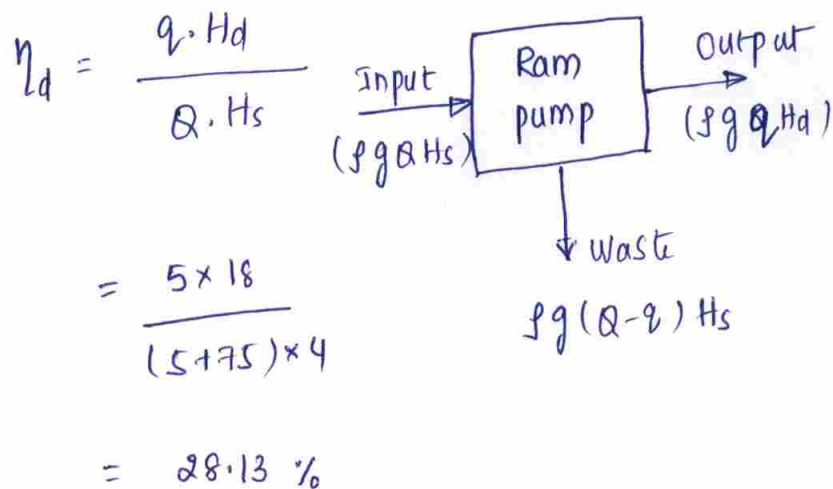 ηd = q.Hd / Q.Hs
Input
(ρgQHs)
Ram
pump
Output
(ρgqHd)
Waste
ρg(Q-q)Hs
= 5×18 / (5+75)×4
= 28.13 %